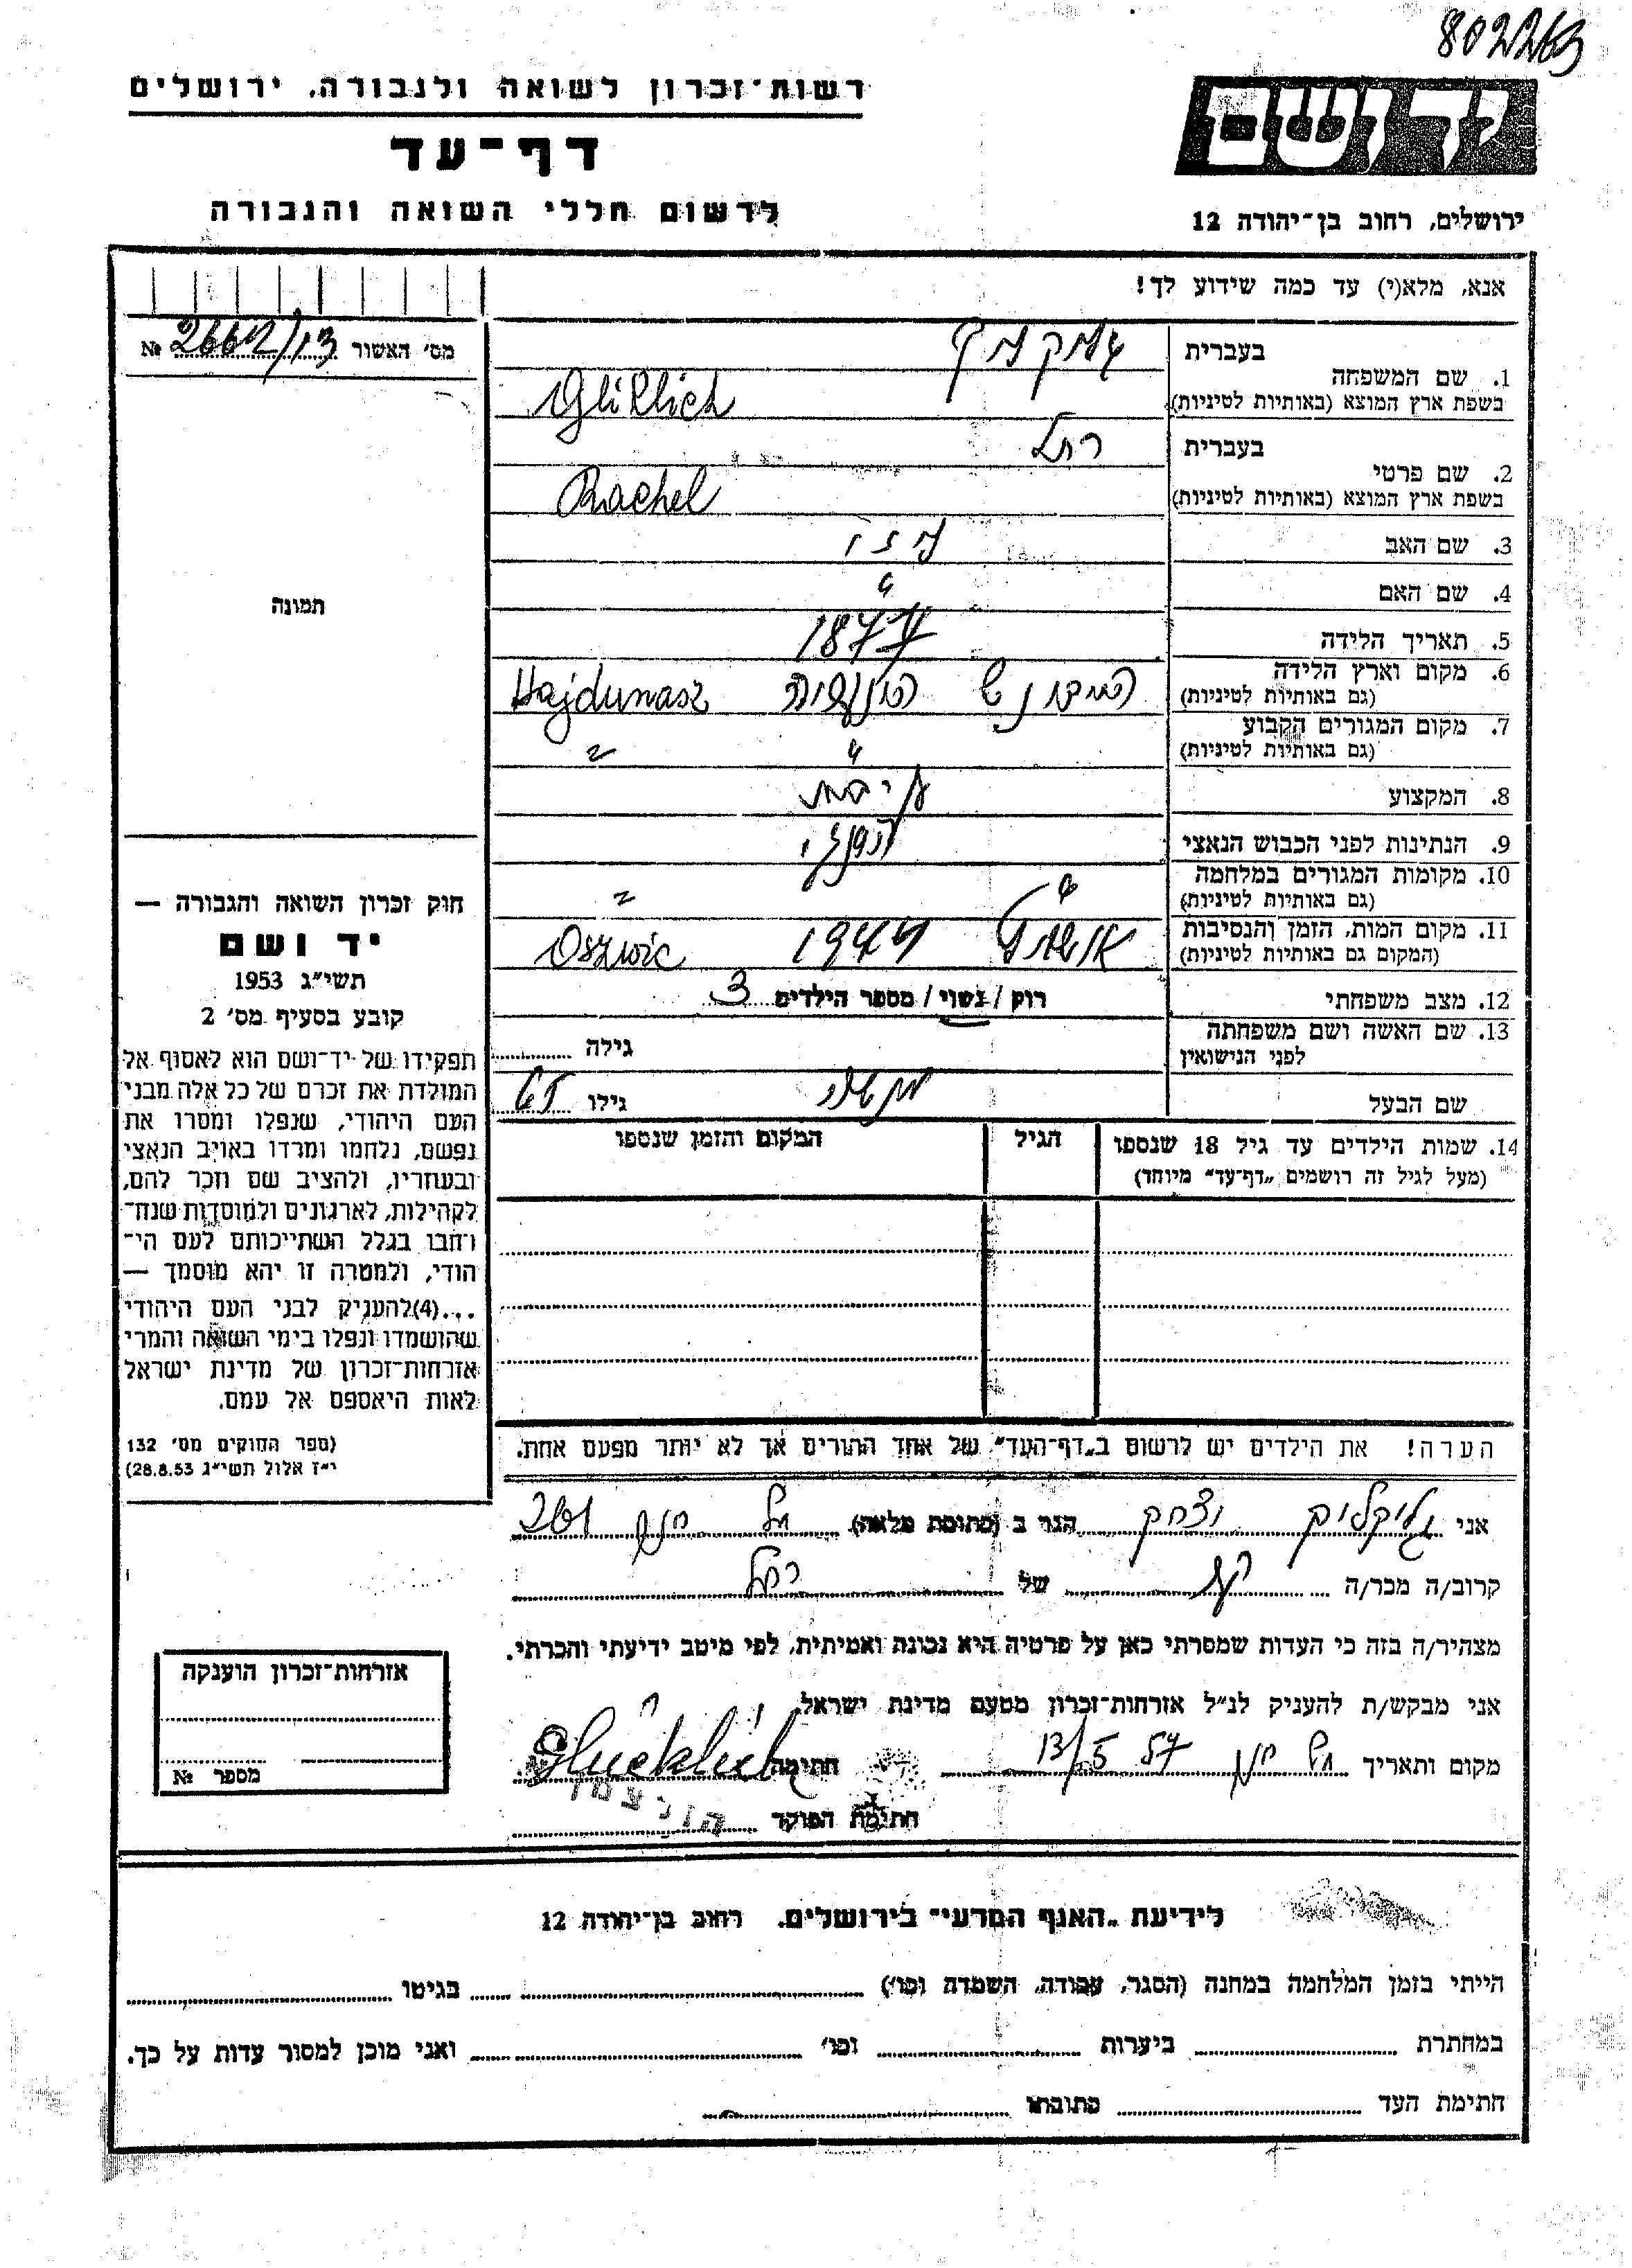 802263
רשות־זכרון לשואה ולגבורה, ירושלים
דף־עד
לרשום חללי השואה והגבורה
יד ושם
ירושלים, רחוב בן־יהודה 12
אנא, מלא(י) עד כמה שידוע לך!
מס' האשור № 2662/13
בעברית
1. שם המשפחה
בשפת ארץ המוצא (באותיות לטיניות) Glüklich
בעברית רחל
2. שם פרטי
בשפת ארץ המוצא (באותיות לטיניות) Rachel
3. שם האב
4. שם האם
5. תאריך הלידה 1877
6. מקום וארץ הלידה
(גם באותיות לטיניות) Hajdunasz
7. מקום המגורים הקבוע
(גם באותיות לטיניות) "
8. המקצוע
9. הנתינות לפני הכבוש הנאצי
10. מקומות המגורים במלחמה
(גם באותיות לטיניות) "
11. מקום המות, הזמן והנסיבות
(המקום גם באותיות לטיניות) 1944
12. מצב משפחתי רוק / נשוי / מספר הילדים 3
13. שם האשה ושם משפחתה
לפני הנישואין גילה
שם הבעל גילו 65
14. שמות הילדים עד גיל 18 שנספו הגיל המקום והזמן שנספו
(מעל לגיל זה רושמים „דף־עד" מיוחד)
תמונה
חוק זכרון השואה והגבורה —
יד ושם
תשי"ג 1953
קובע בסעיף מס' 2
תפקידו של יד־ושם הוא לאסוף אל
המולדת את זכרם של כל אלה מבני
העם היהודי, שנפלו ומסרו את
נפשם, נלחמו ומרדו באויב הנאצי
ובעוזריו, ולהציב שם וזכר להם,
לקהילות, לארגונים ולמוסדות שנח־
רבו בגלל השתייכותם לעם הי־
הודי, ולמטרה זו יהא מוסמך —
...(4)להעניק לבני העם היהודי
שהושמדו ונפלו בימי השואה והמרי
אזרחות־זכרון של מדינת ישראל
לאות היאספם אל עמם.
(ספר החוקים מס' 132
י"ז אלול תשי"ג 28.8.53)
הערה! את הילדים יש לרשום ב„דף־העד" של אחד ההורים אך לא יותר מפעם אחת.
אני גליקליק יצחק הגר ב (כתובת מלאה)
קרוב/ה מכר/ה של רחל
מצהיר/ה בזה כי העדות שמסרתי כאן על פרטיה היא נכונה ואמיתית, לפי מיטב ידיעתי והכרתי.
אני מבקש/ת להעניק לנ"ל אזרחות־זכרון מטעם מדינת ישראל.
מקום ותאריך 13/5 57 חתימה Glücklich
חתימת הפוקד
אזרחות־זכרון הוענקה
מספר №
לידיעת „האגף המדעי" בירושלים, רחוב בן־יהודה 12
הייתי בזמן המלחמה במחנה (הסגר, עבודה, השמדה וכו') בגיטו
במחתרת ביערות וכו' ואני מוכן למסור עדות על כך.
חתימת העד כתובתו